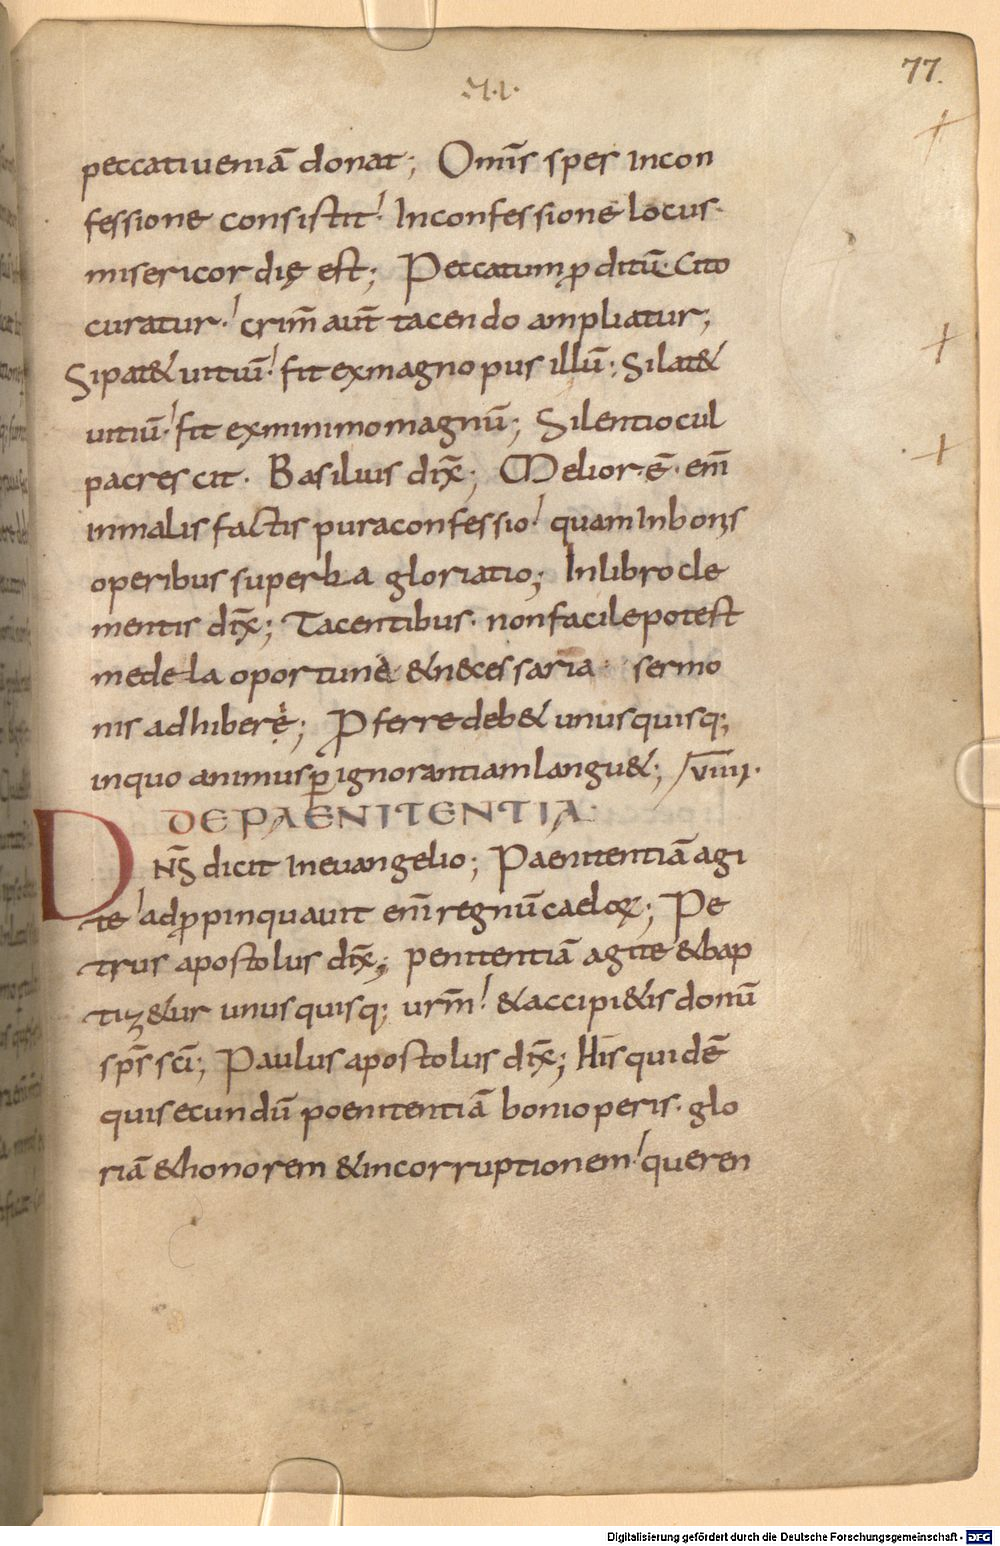 77.
peccati ueniā donat; Omīs spes in con
fessione consistit. In confessione locus.
misericordię est; Peccatum ꝓditū. Cito
curatur. crim̄ aut̄ tacendo ampliatur;
Si pat& uitiū. fit ex magno pusillū; Si lat&
uitiū. fit ex minimo magnū; Silentio cul
pa crescit. Basilius dix̄; Melior. ē. em̄
in malis factis pura confessio. quam in bonis
operibus superba gloriatio; In libro cle
mentis dix̄; Tacentibus. non facile potest
medela oportune & n&cessaria sermo
nis adhiberę; Ꝓferre deb& unusquisq;
in quo animus ꝑ ignorantiam langu&; VIIII.
DE PAENITENTIA.
DN̄S dicit in euangelio; Paenitentiā agi
te adꝓpinquauit em̄ regnū caeloꝝ; Pe
trus apostolus dix̄; penitentiā agite & bap
tiz&ur unusquisq; ur̄m. & accipi&is donū
sp̄s sc̄i; Paulus apostolus dix̄; His quidē
qui secundū poenitentiā boni operis. glo
riā & honorem & incorruptionem. queren
Digitalisierung gefördert durch die Deutsche Forschungsgemeinschaft - DFG